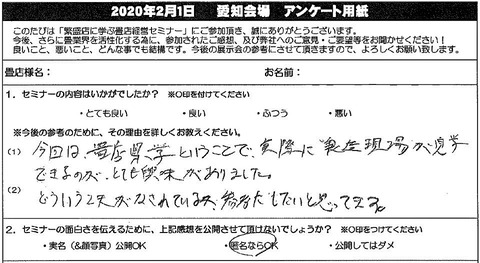 2020年2月1日 愛知会場 アンケート用紙
このたびは「繁盛店に学ぶ畳店経営セミナー」にご参加頂き、誠にありがとうございます。
今後、さらに畳業界を活性化する為に、参加されたご感想、及び弊社へのご意見・ご要望等をお聞かせください！
良いこと、悪いこと、どんな事でも結構です。今後の展示会の参考にさせて頂きますので、よろしくお願い致します。
畳店様名： お名前：
1．セミナーの内容はいかがでしたか？ ※○印を付けてください
・とても良い ・良い ・ふつう ・悪い
※今後の参考のために、その理由を詳しくお教えください。
(1) 今回は、畳店見学ということで、実際に生産現場が見学
できるのが、とても興味がありました。
(2) どういう工夫がなされているか、参考にしたいと思ってます。
2．セミナーの面白さを伝えるために、上記感想を公開させて頂けないでしょうか？ ※○印をつけてください
・実名（&顔写真）公開OK ・匿名ならOK ・公開してはダメ